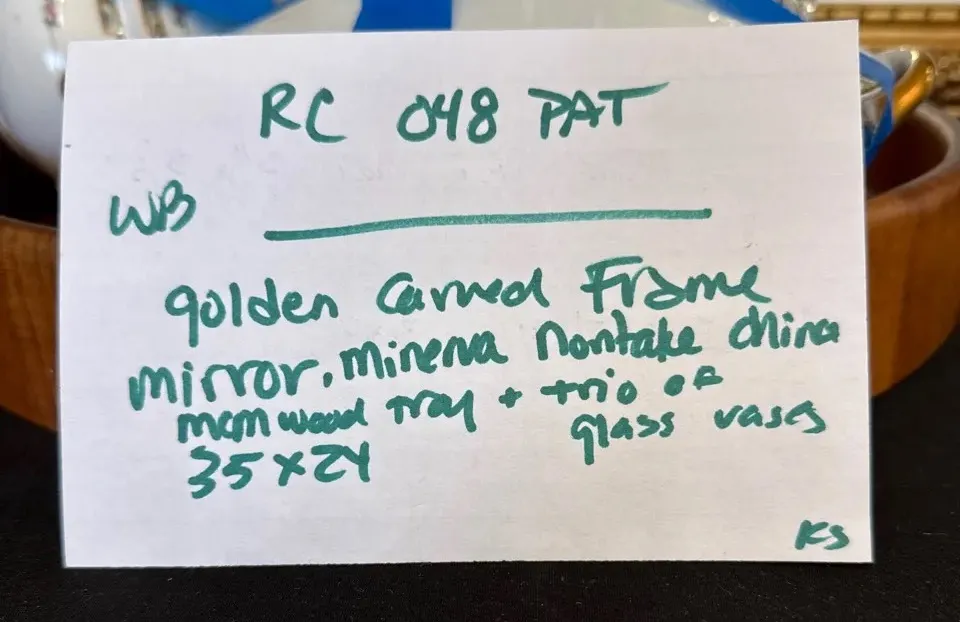 RC 048 PAT
WB
golden Carved Frame
mirror, minerva Noritake china
mcm wood Tray + trio of
glass vases
35 x 24
KS